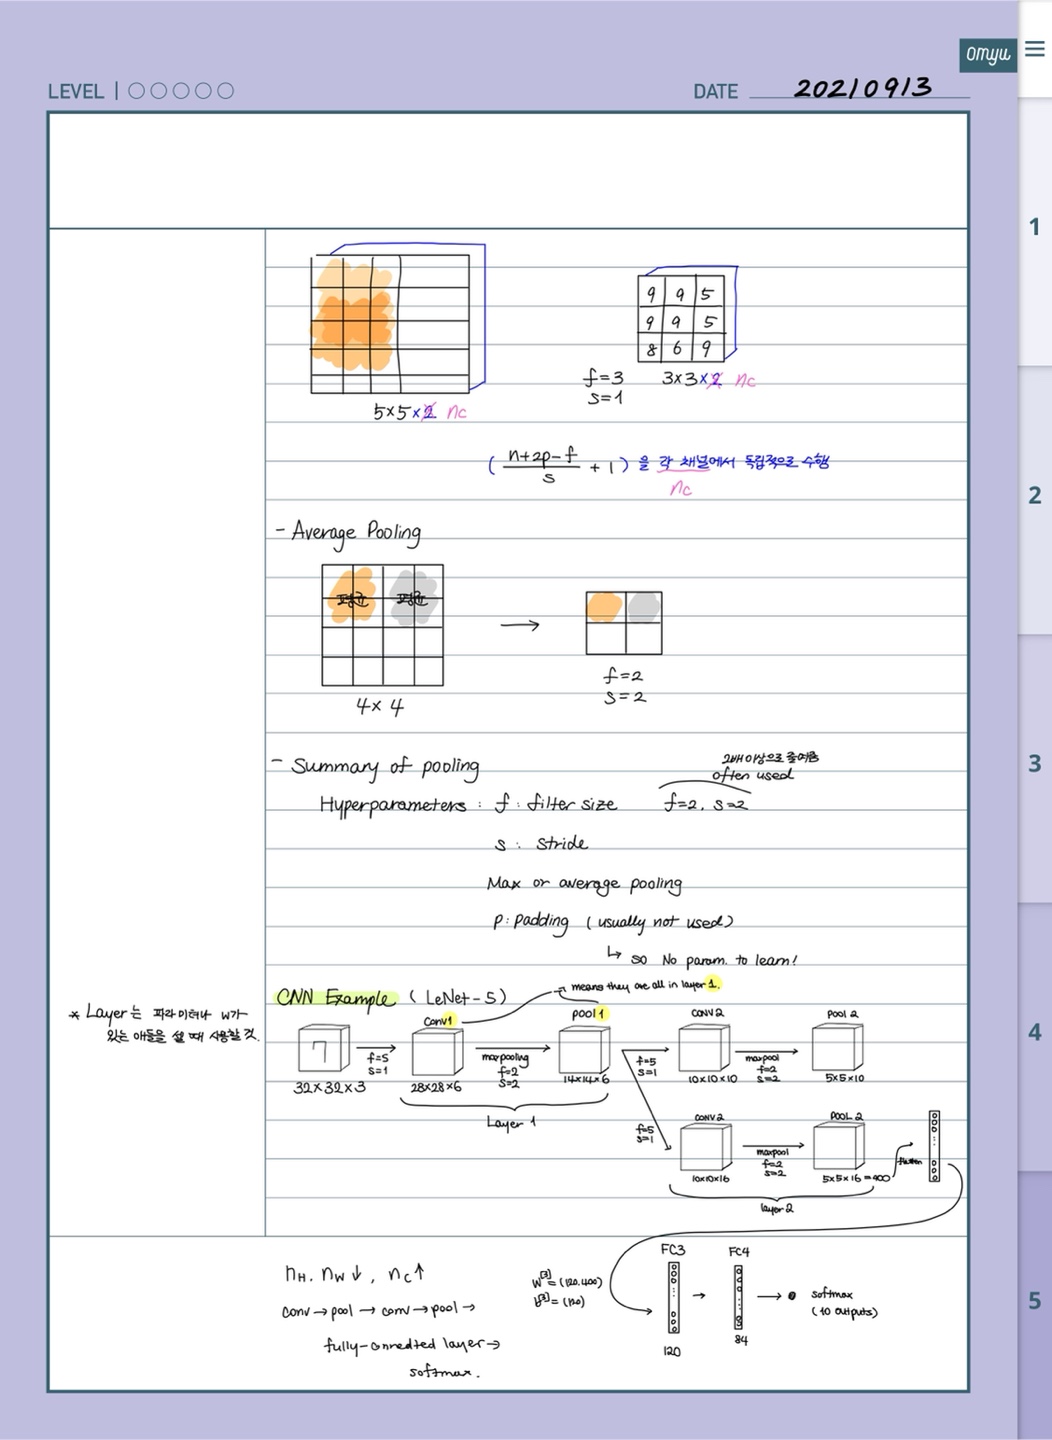 omyu
LEVEL | ○○○○○
DATE 20210913
1
2
3
4
5
9 9 5
9 9 5
8 6 9
f=3
s=1
3×3×2 nc
5×5×2 nc
( (n+2p-f)/s + 1 ) 을 각 채널에서 독립적으로 수행
nc
- Average Pooling
평균 평균
4×4
f=2
s=2
- Summary of pooling
2배 이상으로 줄여줌
often used
Hyperparameters : f : filter size f=2, s=2
s : stride
Max or average pooling
p : padding (usually not used)
↳ so No param. to learn!
CNN Example (LeNet-5)
means they are all in layer 1.
* Layer는 파라미터나 w가
있는 애들을 셀 때 사용할 것.
7
32×32×3
f=5
s=1
Conv1
28×28×6
maxpooling
f=2
s=2
pool1
14×14×6
Layer 1
f=5
s=1
CONV2
10×10×10
maxpool
f=2
s=2
Pool 2
5×5×10
f=5
s=1
CONV2
10×10×16
maxpool
f=2
s=2
POOL 2
5×5×16=400
flatten
layer2
nH, nW↓, nC↑
conv→pool→conv→pool→
fully-onnedted layer→
softmax.
W[3]=(120,400)
b[3]=(120)
FC3
120
FC4
84
softmax
(10 outputs)